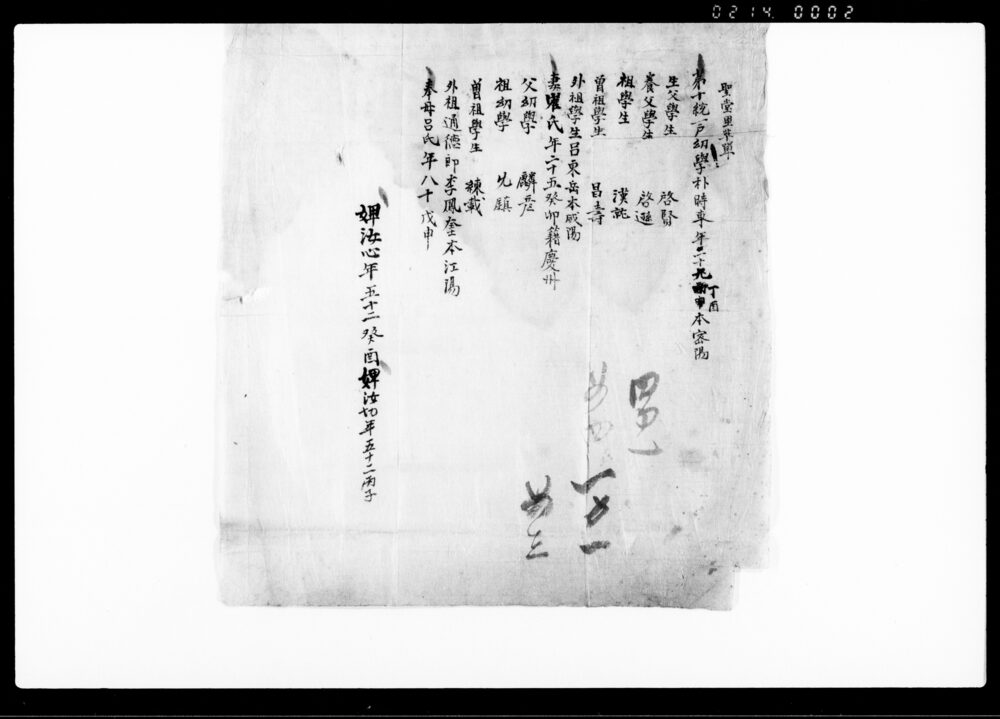 0214 0002
聖堂里草單
第十統一戶幼學朴時車年二十九丁酉本密陽
生父學生 啓賢
養父學生 啓遜
祖學生 漢
曾祖學生 昌壽
外祖學生呂東岳本咸陽
妻 氏年二十五癸卯籍慶州
父幼學 麟
祖幼學 鎮
曾祖學生 載
外祖通德郎李鳳奎本江陽
奉母呂氏年八十戊申
婢汝心年五十二癸酉婢汝切年五十二丙子
男一
女四
一男一
女三